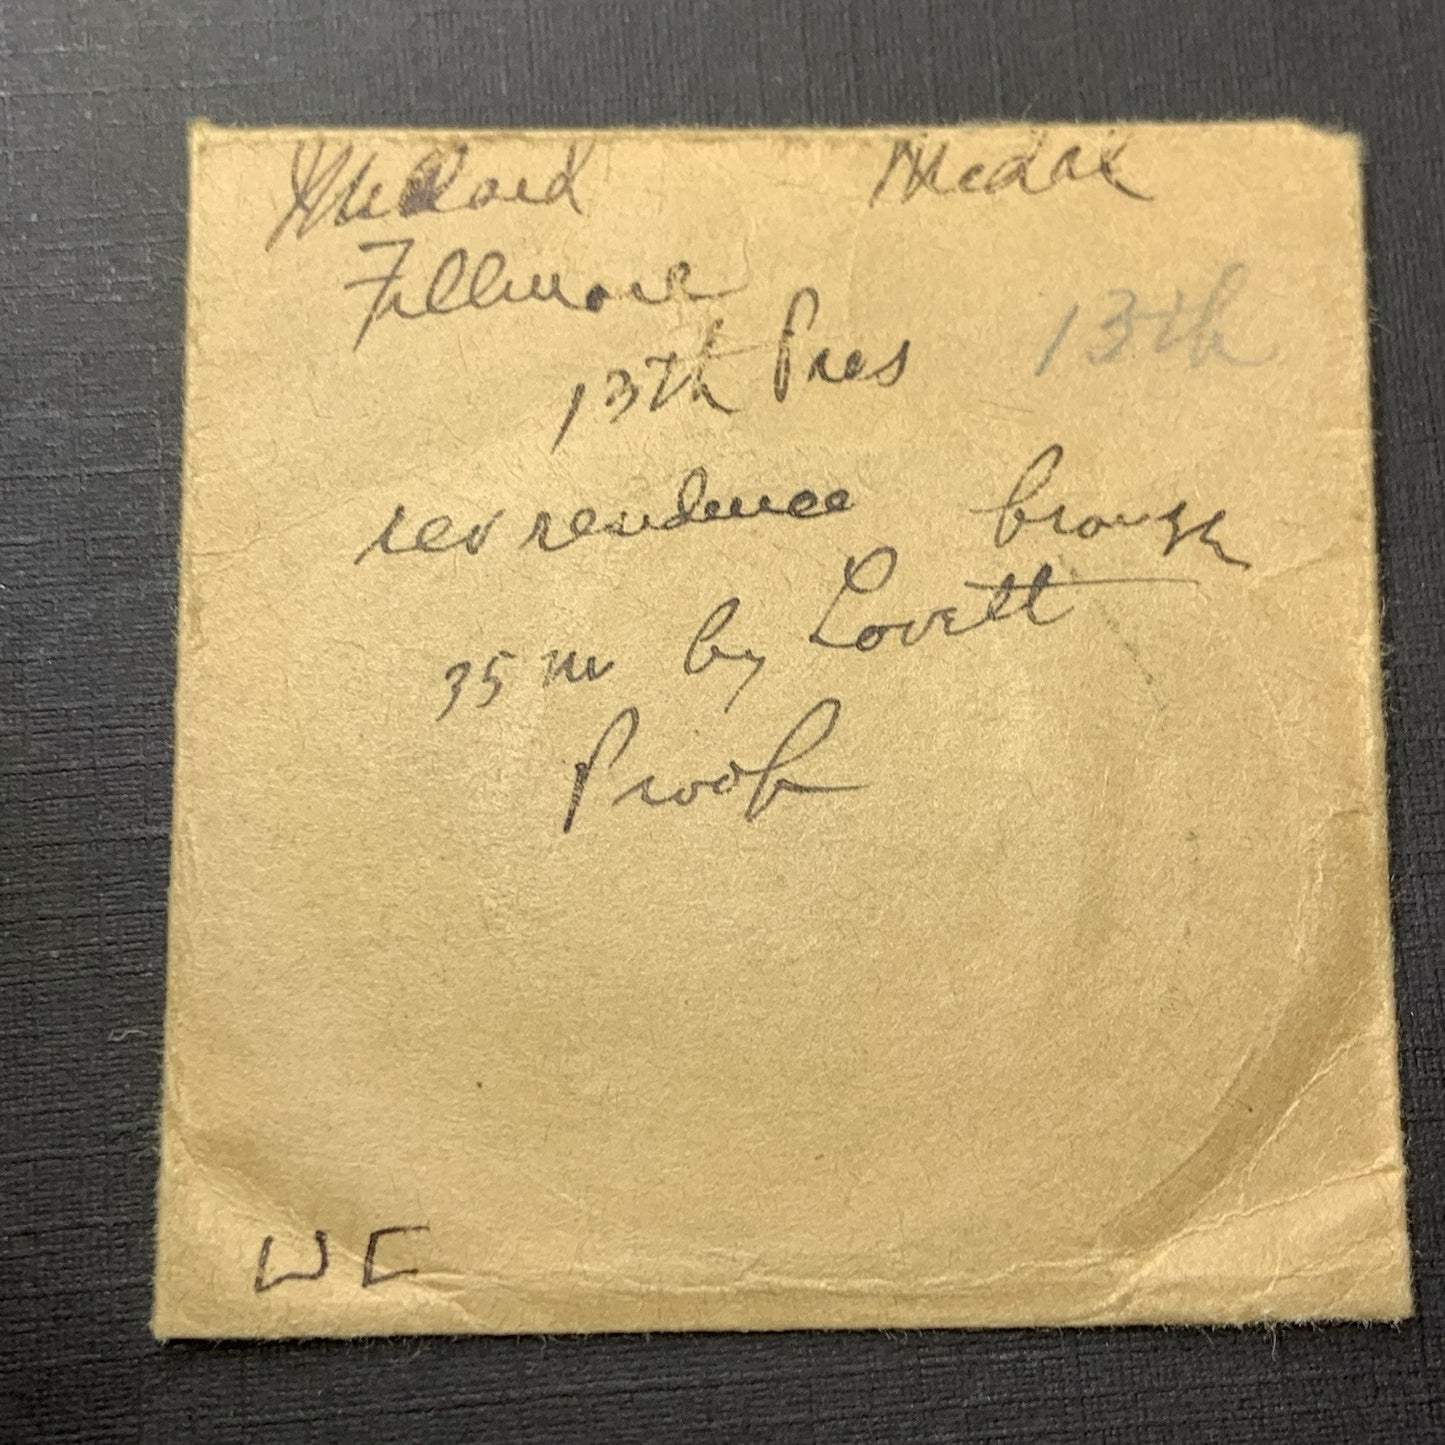 Millard Medal
Fillmore
13th Pres 13th
rev residence bronze
35 m by Lovett
Proof
WE